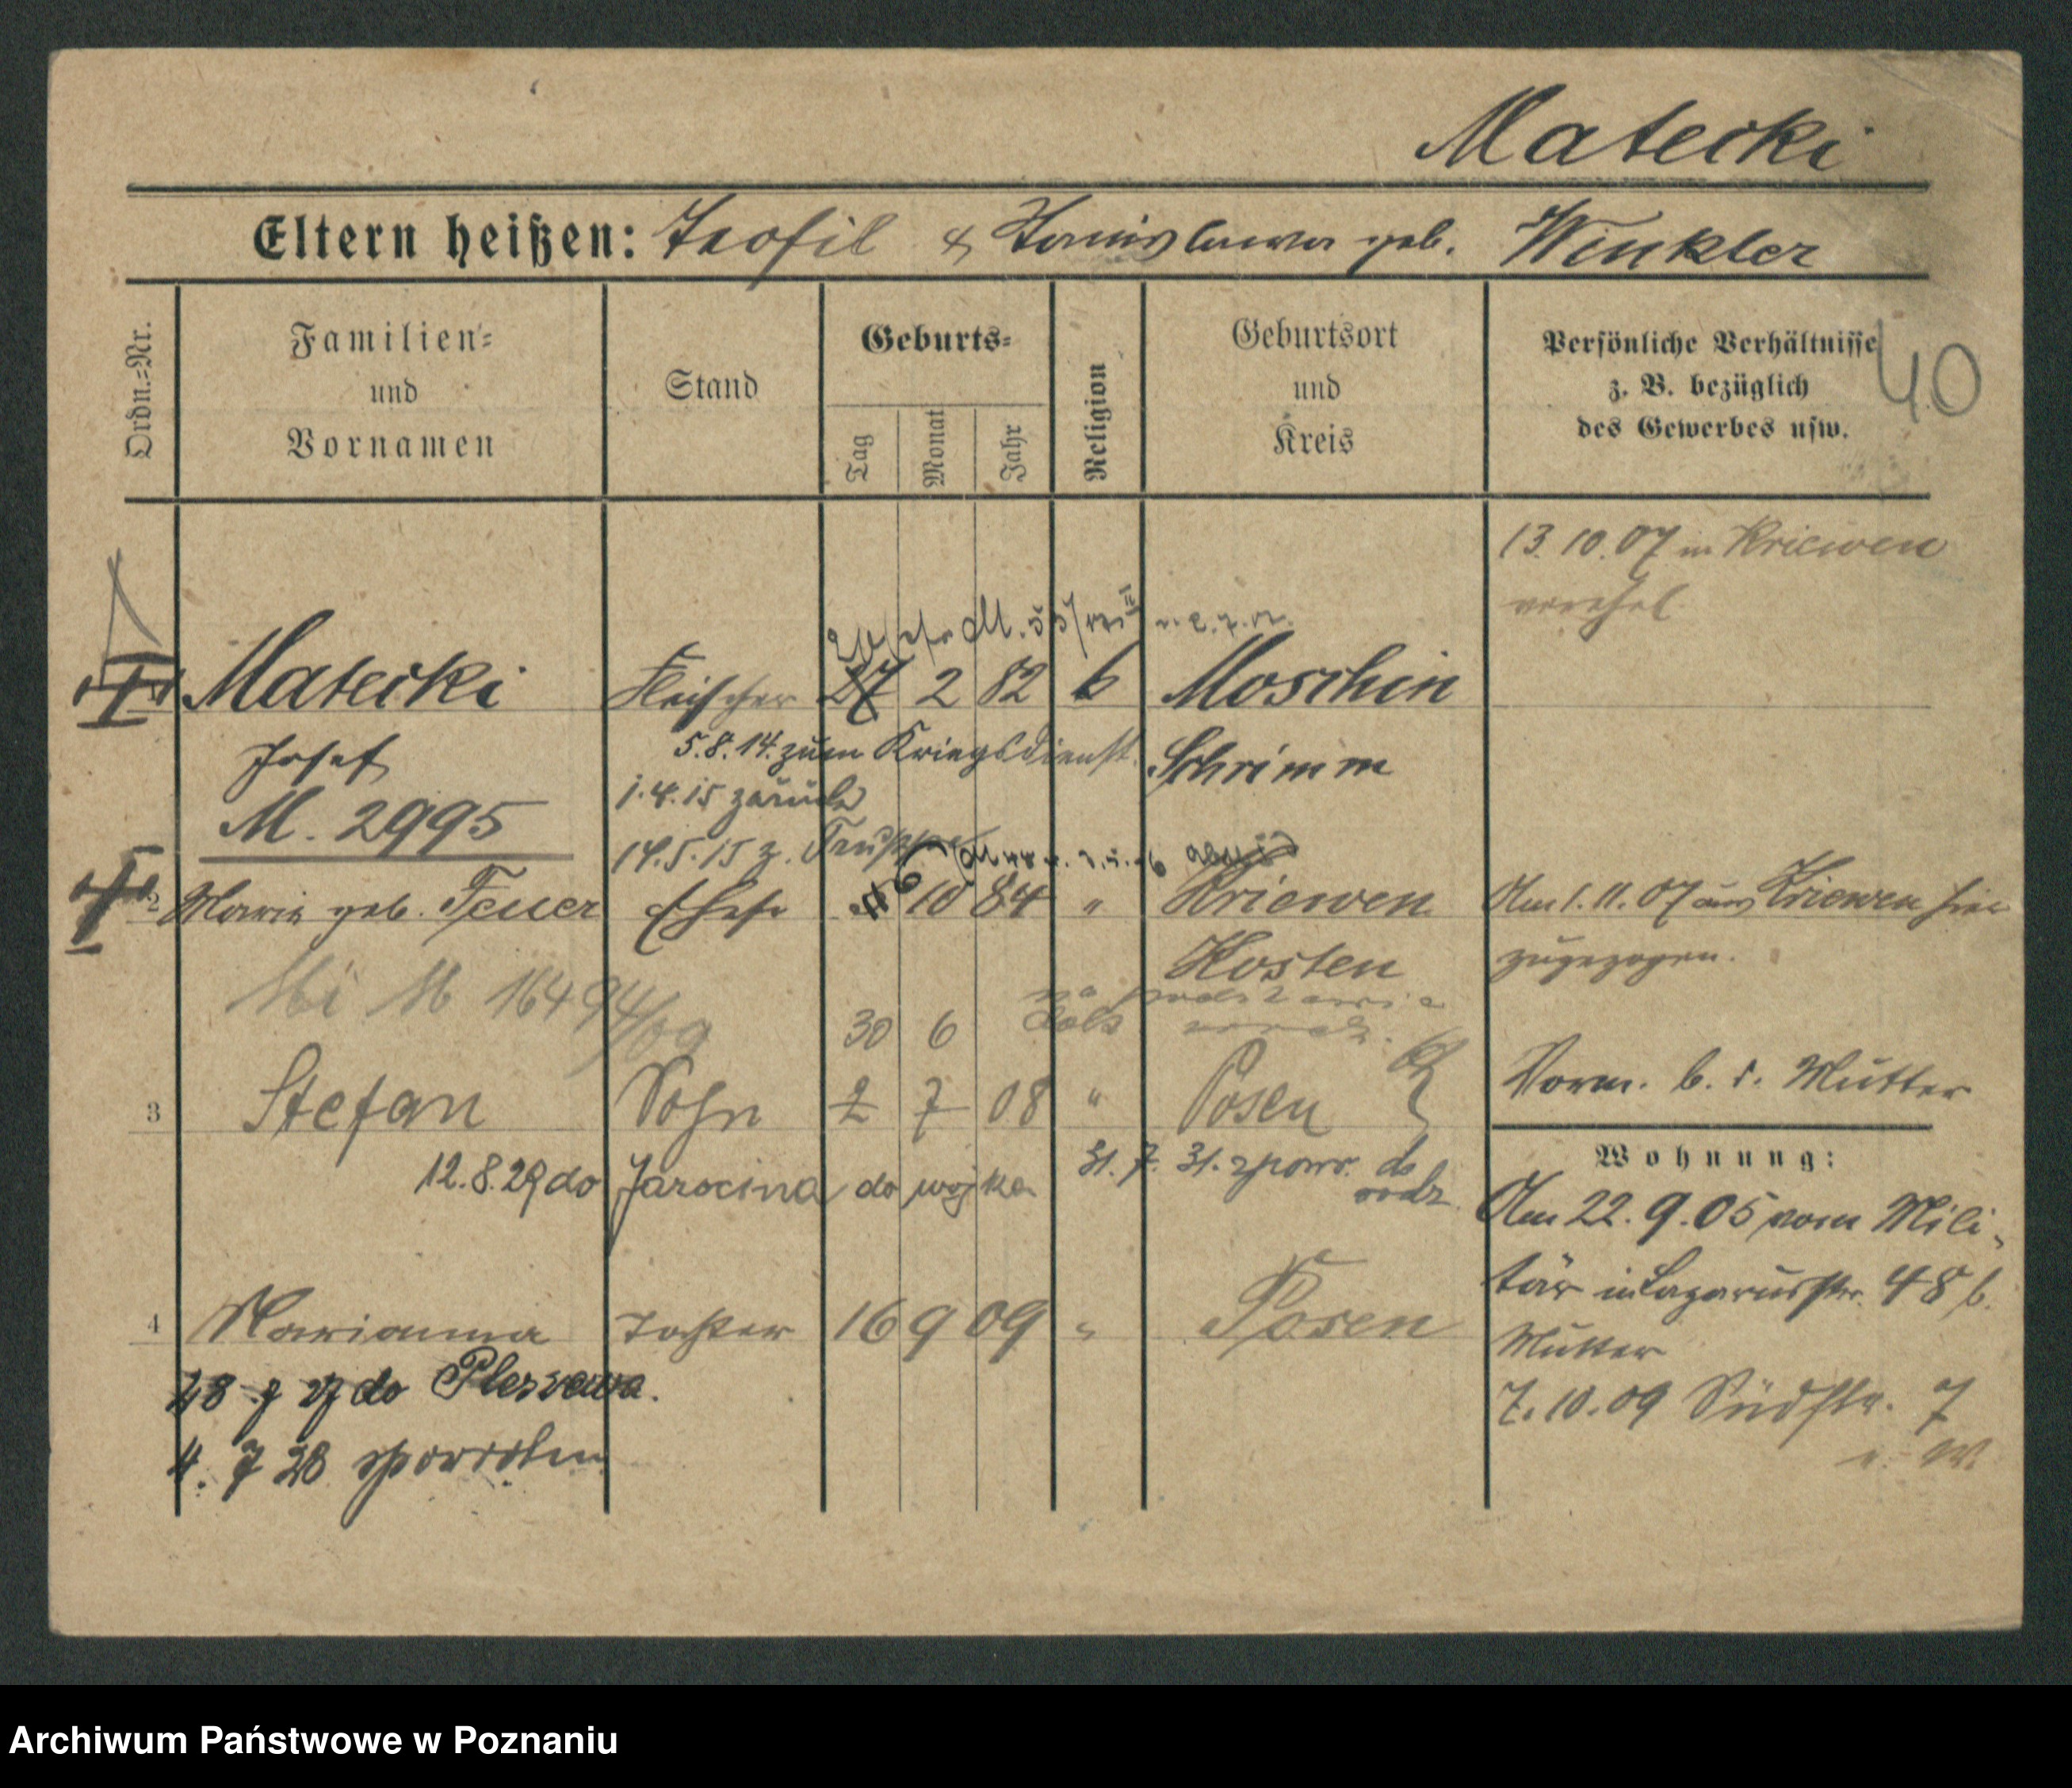 Matecki
Eltern heißen: Teofil & Stanislawa geb. Winkler
Ordn.=Nr.
Familien=
und
Vornamen
Stand
Geburts=
Tag
Monat
Jahr
Religion
Geburtsort
und
Kreis
Persönliche Verhältnisse
z. B. bezüglich
des Gewerbes usw.
40
13. 10. 07 in Kriewen
verehel.
Matecki Fleischer 27 2 82 Moschin
Josef
5.8.14. zum Kriegsdienst. Schrimm
M. 2995
1.4.15 zurück
14.5.15 z. Truppe
2 Maria geb. Feuer Ehefr 10 84 " Kriewen
Kosten
Am 1. 11. 07 aus Kriewen hier
zugezogen.
30 6
na podstawie
3 Stefan Sohn 2 7 08 " Posen
Vorm. b. d. Mutter
12.8.29 do Jarocina do wojska
31. 7. 31. z powr. do
rodz.
Wohnung:
Am 22. 9. 05 vom Mili-
tär in Lazarusstr. 48 b.
Mutter
4 Marianna Tochter 16 9 09 " Posen
7. 10. 09 Südstr. 7
do Pleszewa.
4. 7 28
Archiwum Państwowe w Poznaniu